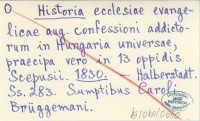 O Historia ecclesiae evange-
licae aug. confessioni addicto-
rum in Hungaria universae,
praecipue vero in 13 oppidis
Scepusii. 1830. – Halberstadt.
Ss. 283. Sumptibus Caroli
Brüggemani.